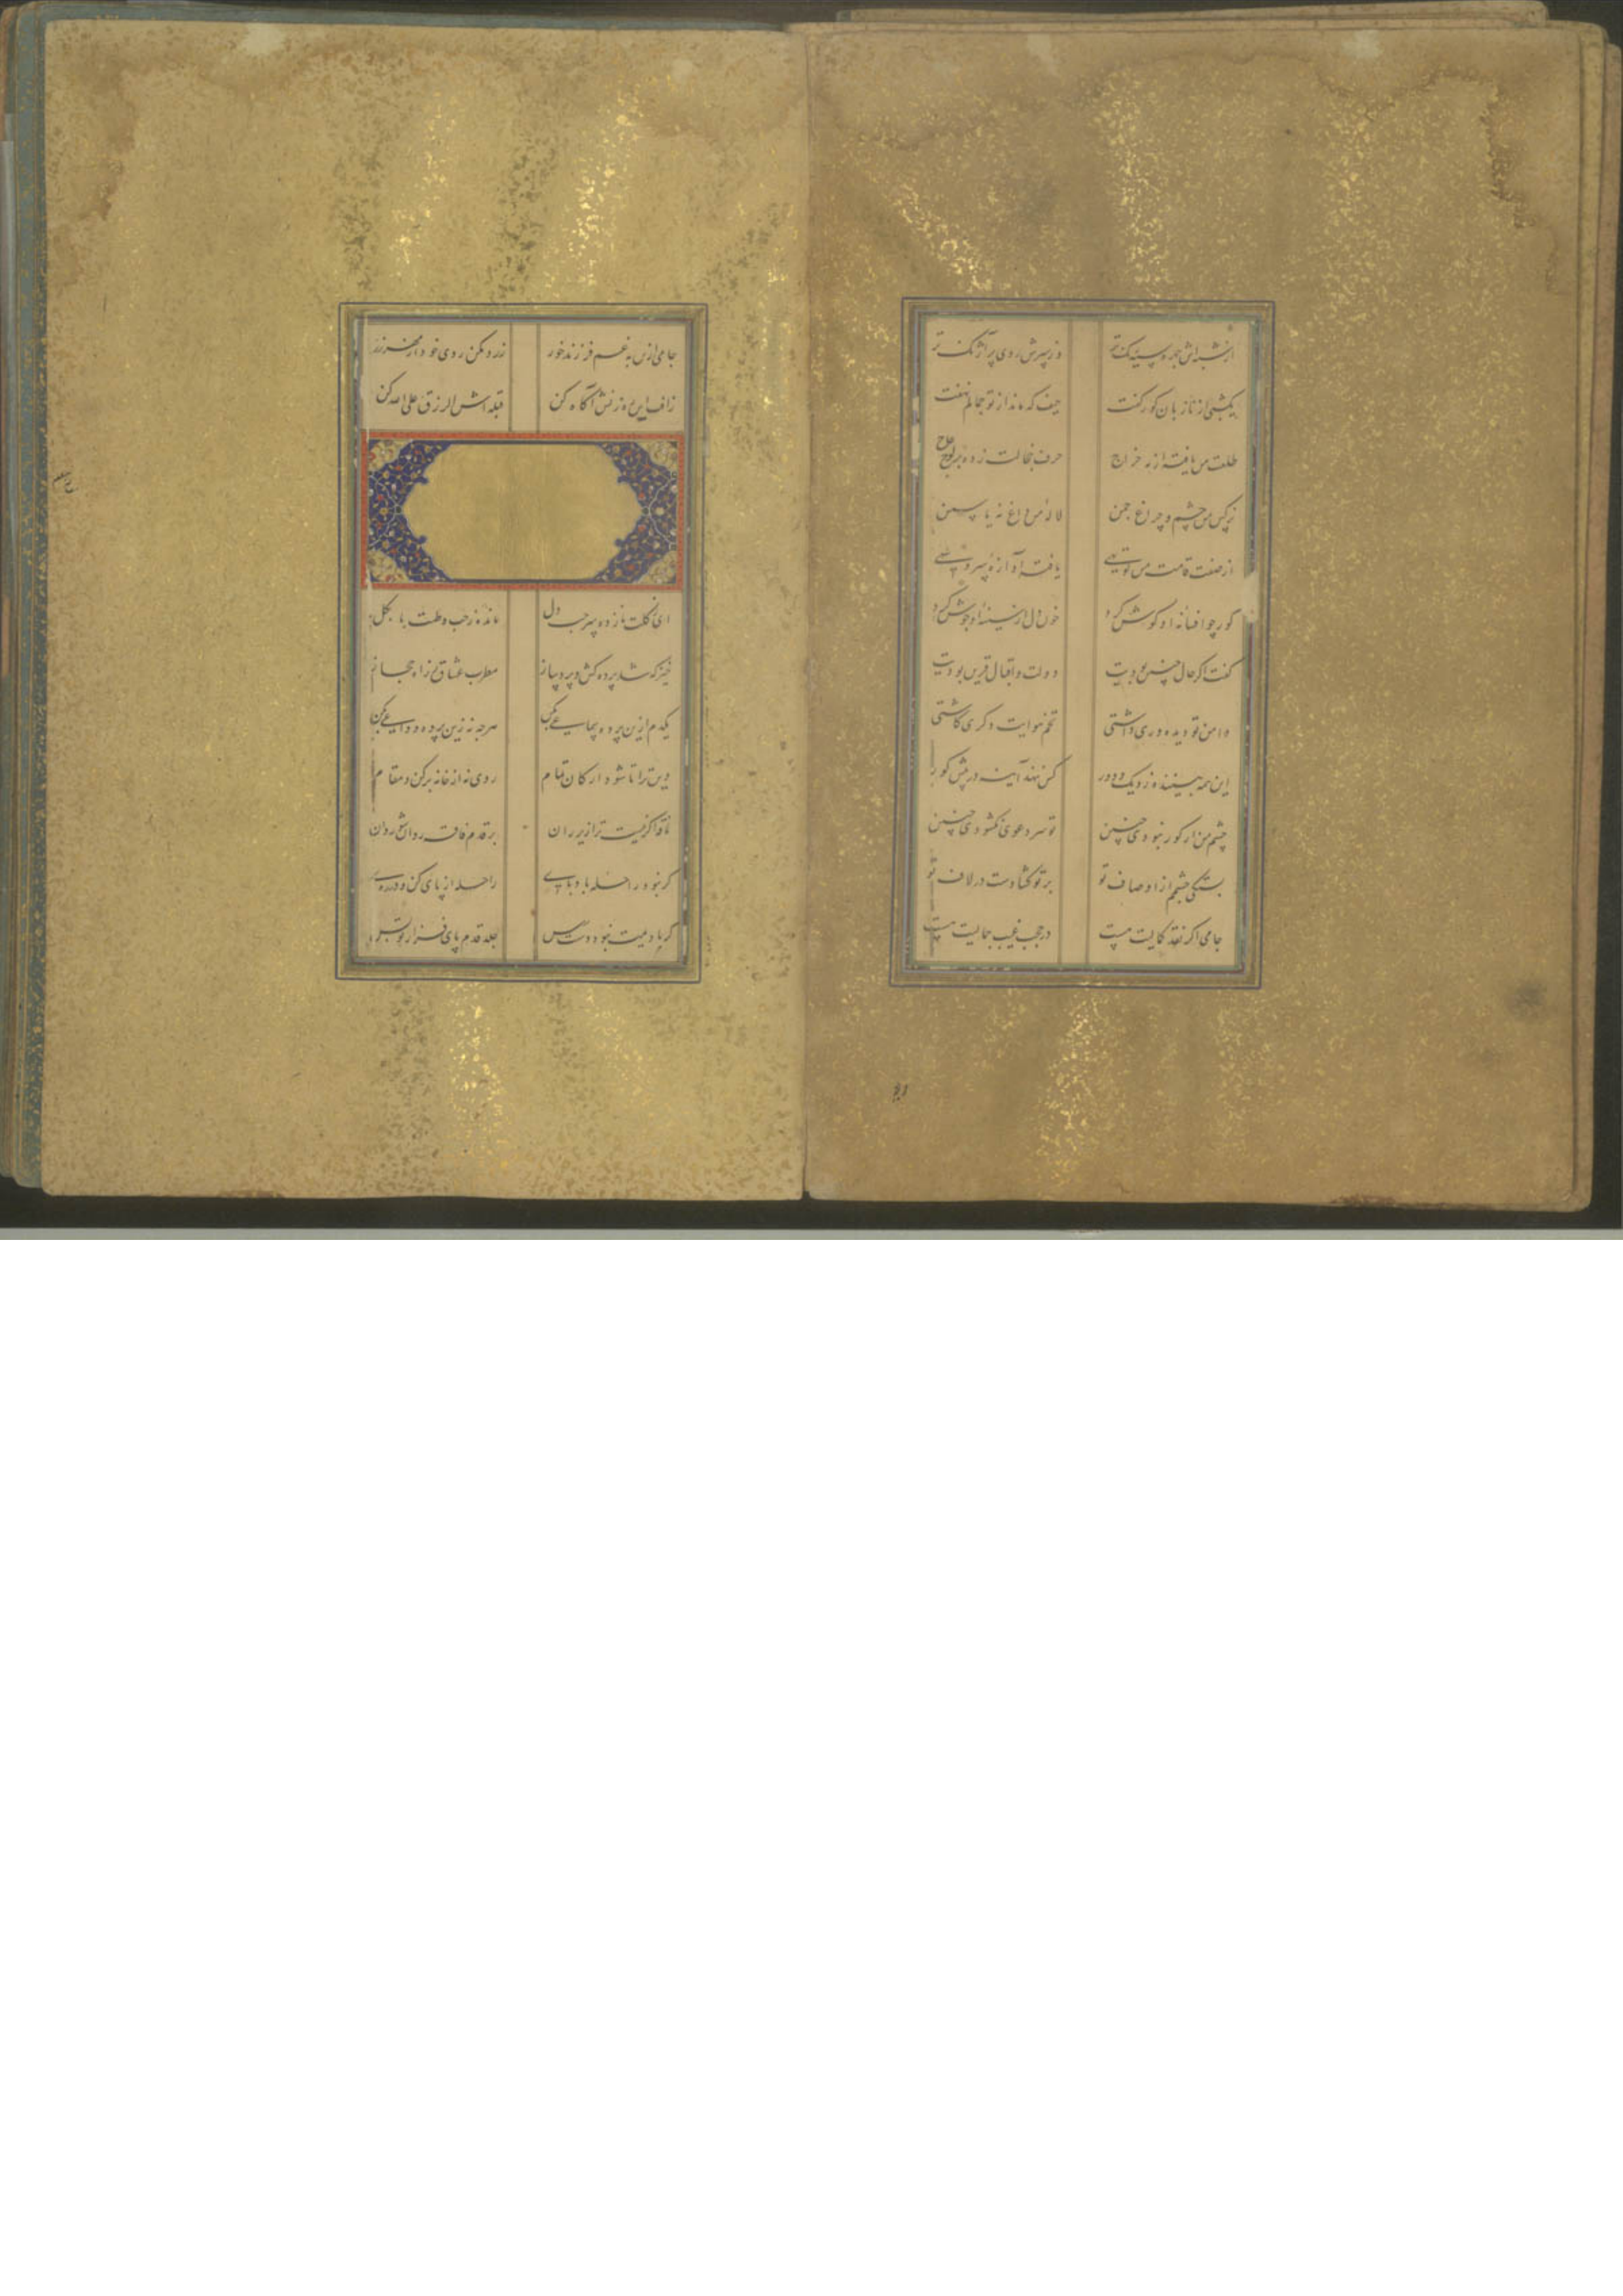 از شبه اش چهره سیه رنگ تر وز سپرش روی پر آژنگ تر
یکشبی از ناز بآن کور گفت حیف که ماند از تو جمالم نهفت
طلعت من یافته از مه خراج حرف خجالت زده بر لوح عاج
نرکس من چشم و چراغ چمن لاله من داغ نه یاسمین
از صفت قامت من کوتهی یافته آوازه سرو سهی
کور چو افسانه او کوش کرد خون دل از سینه او جوش کرد
کفت اکر حال چنین بودیت دولت و اقبال قرین بودیت
دامن تو دیده وری داشتی تخم هوایت دکری کاشتی
این همه بیننده ز نزدیک و دور کس ننهد آینه در پیش کور
چشم من ار کور نبودی چنین تو سر دعوی نکشودی چنین
بستکی چشمم از اوصاف تو بر تو کشادست در لاف تو
جامی اکر نقد کمالیت هست در حجب غیب جمالیت هست
جامی ازین به غم فرزند خور زرد مکن روی خود از بهر زر
زافت این رهزنش آکاه کن قبله اش الرزق علی الله کن
ای ز کلت تازه زده سر حب دل مانده ز حب وطنت پا بکل
خیز که شد پرده کش و پرده ساز مطرب عشاق براه حجاز
یکدم ازین پرده سماعی بکن هرچه نه زین پرده وداعی بکن
دین ترا تا شود ارکان تمام روی نه از خانه برکن و مقام
ناقه اکر نیست ترا زیر ران بر قدم فاقه روان شو روان
کر نبود راحله باد پای راحله از پای کن و در ره آی
کر بادیمت نبود دست رس جلد قدم پای فزار تو بس